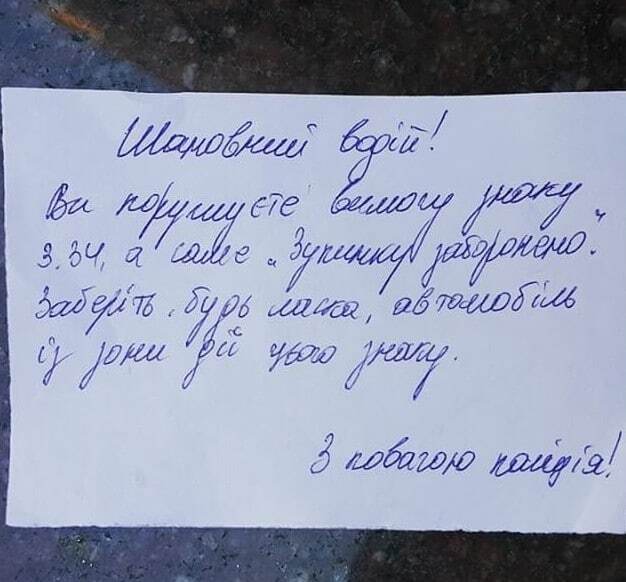 Шановний водій!
Ви порушуєте вимогу знаку
3.34, а саме „Зупинку заборонено".
Заберіть, будь ласка, автомобіль
із зони дії цього знаку.
З повагою поліція!